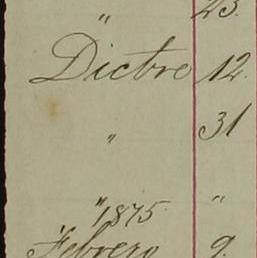 " 23.
Dictre 12.
" 31
" 1875 "
Febrero 9.